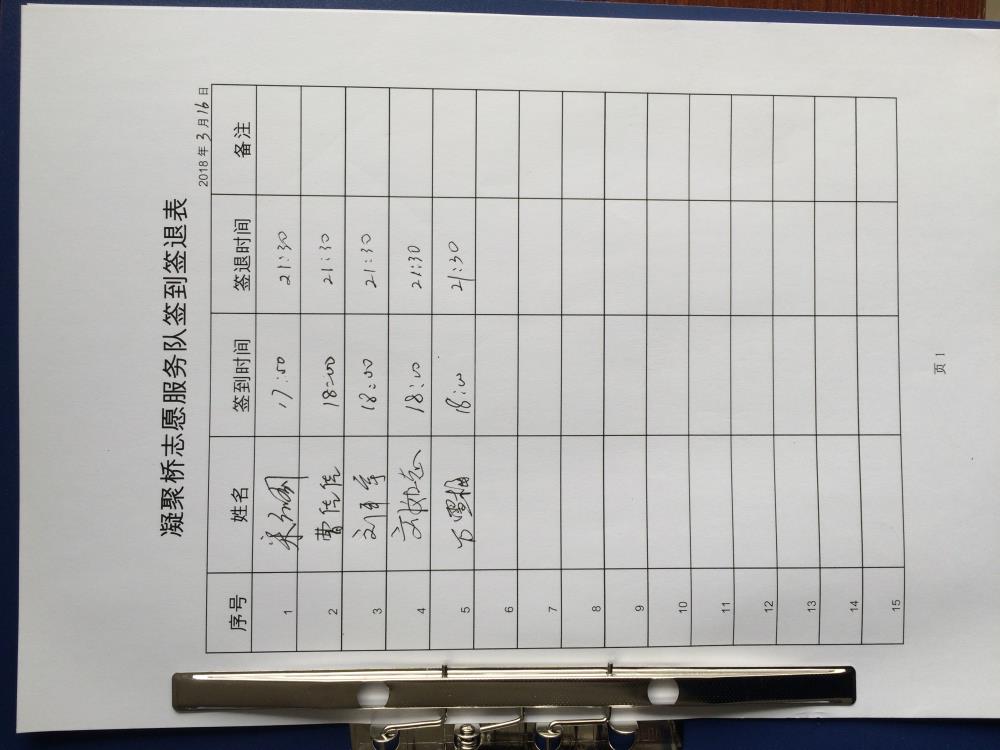 凝聚桥志愿服务队签到签退表
2018 年 3 月 16 日
序号 姓名 签到时间 签退时间 备注
1 17:00 21:30
2 曹佳佳 18:00 21:30
3 18:00 21:30
4 18:00 21:30
5 18:00 21:30
6
7
8
9
10
11
12
13
14
15
页 1